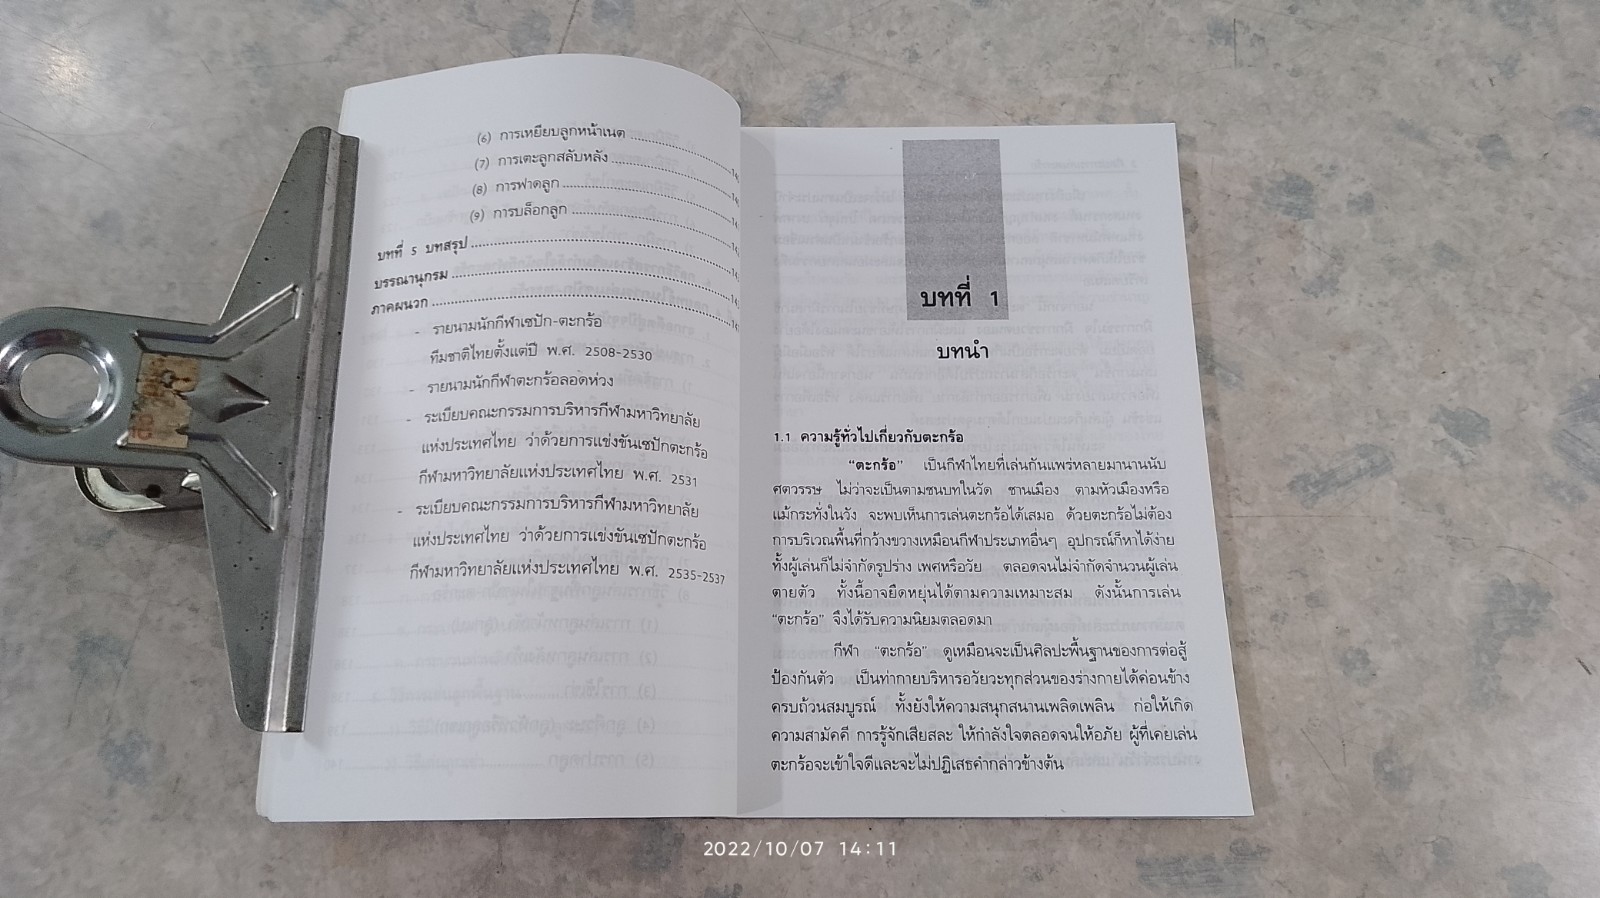 (6) การเหยียบลูกหน้าเนต
(7) การเตะลูกสลับหลัง
(8) การฟาดลูก
(9) การบล็อกลูก
บทที่ 5 บทสรุป
บรรณานุกรม
ภาคผนวก
- รายนามนักกีฬาเซปัก-ตะกร้อ
ทีมชาติไทยตั้งแต่ปี พ.ศ. 2508-2530
- รายนามนักกีฬาตะกร้อลอดห่วง
- ระเบียบคณะกรรมการบริหารกีฬามหาวิทยาลัย
แห่งประเทศไทย ว่าด้วยการแข่งขันเซปักตะกร้อ
กีฬามหาวิทยาลัยแห่งประเทศไทย พ.ศ. 2531
- ระเบียบคณะกรรมการบริหารกีฬามหาวิทยาลัย
แห่งประเทศไทย ว่าด้วยการแข่งขันเซปักตะกร้อ
กีฬามหาวิทยาลัยแห่งประเทศไทย พ.ศ. 2535-2537
บทที่ 1
บทนำ
1.1 ความรู้ทั่วไปเกี่ยวกับตะกร้อ
"ตะกร้อ" เป็นกีฬาไทยที่เล่นกันแพร่หลายมานานนับ
ศตวรรษ ไม่ว่าจะเป็นตามชนบทในวัด ชานเมือง ตามหัวเมืองหรือ
แม้กระทั่งในวัง จะพบเห็นการเล่นตะกร้อได้เสมอ ด้วยตะกร้อไม่ต้อง
การบริเวณพื้นที่กว้างขวางเหมือนกีฬาประเภทอื่นๆ อุปกรณ์ก็หาได้ง่าย
ทั้งผู้เล่นก็ไม่จำกัดรูปร่าง เพศหรือวัย ตลอดจนไม่จำกัดจำนวนผู้เล่น
ตายตัว ทั้งนี้อาจยืดหยุ่นได้ตามความเหมาะสม ดังนั้นการเล่น
"ตะกร้อ" จึงได้รับความนิยมตลอดมา
กีฬา "ตะกร้อ" ดูเหมือนจะเป็นศิลปะพื้นฐานของการต่อสู้
ป้องกันตัว เป็นท่ากายบริหารอวัยวะทุกส่วนของร่างกายได้ค่อนข้าง
ครบถ้วนสมบูรณ์ ทั้งยังให้ความสนุกสนานเพลิดเพลิน ก่อให้เกิด
ความสามัคคี การรู้จักเสียสละ ให้กำลังใจตลอดจนให้อภัย ผู้ที่เคยเล่น
ตะกร้อจะเข้าใจดีและจะไม่ปฏิเสธคำกล่าวข้างต้น
2022/10/07 14:11